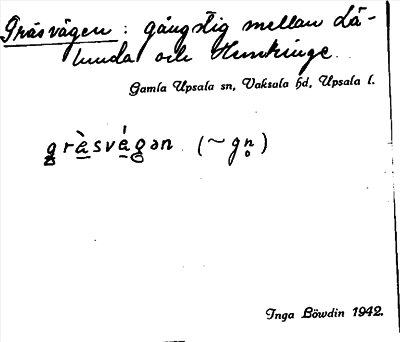 Gräsvägen : gångstig mellan Lä-
bunda och Hemringe.
Gamla Upsala sn, Vaksala hd, Upsala l.
gräsvágən (~gn̥)
Inga Böwdin 1942.